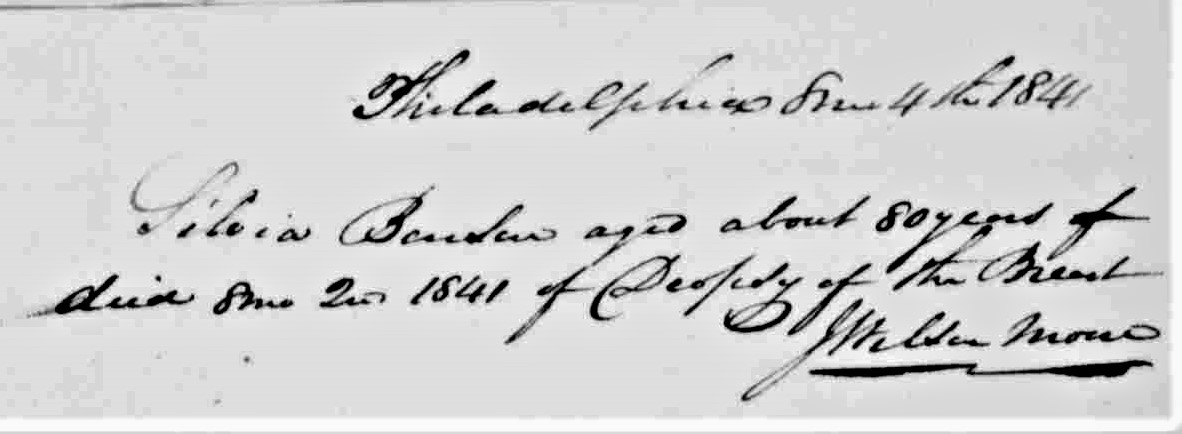 Philadelphia 8mo 4th 1841
Silvia Benson aged about 80 years of
died 8mo 2nd 1841 of Dropsy of the Breast
J Wilson Moore